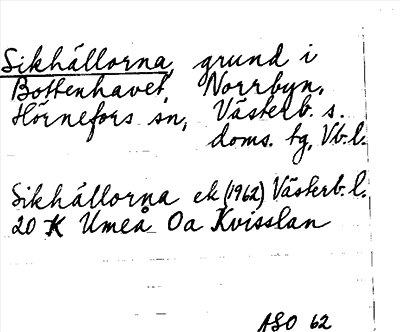 Sikhällorna, grund i
Bottenhavet, Norrbyn,
Hörnefors sn, Västerb. s.
doms. tg, Vb.l.
Sikhällorna ek (1962) Västerb.l.
20 K Umeå Oa Kvisslan
ASO 62